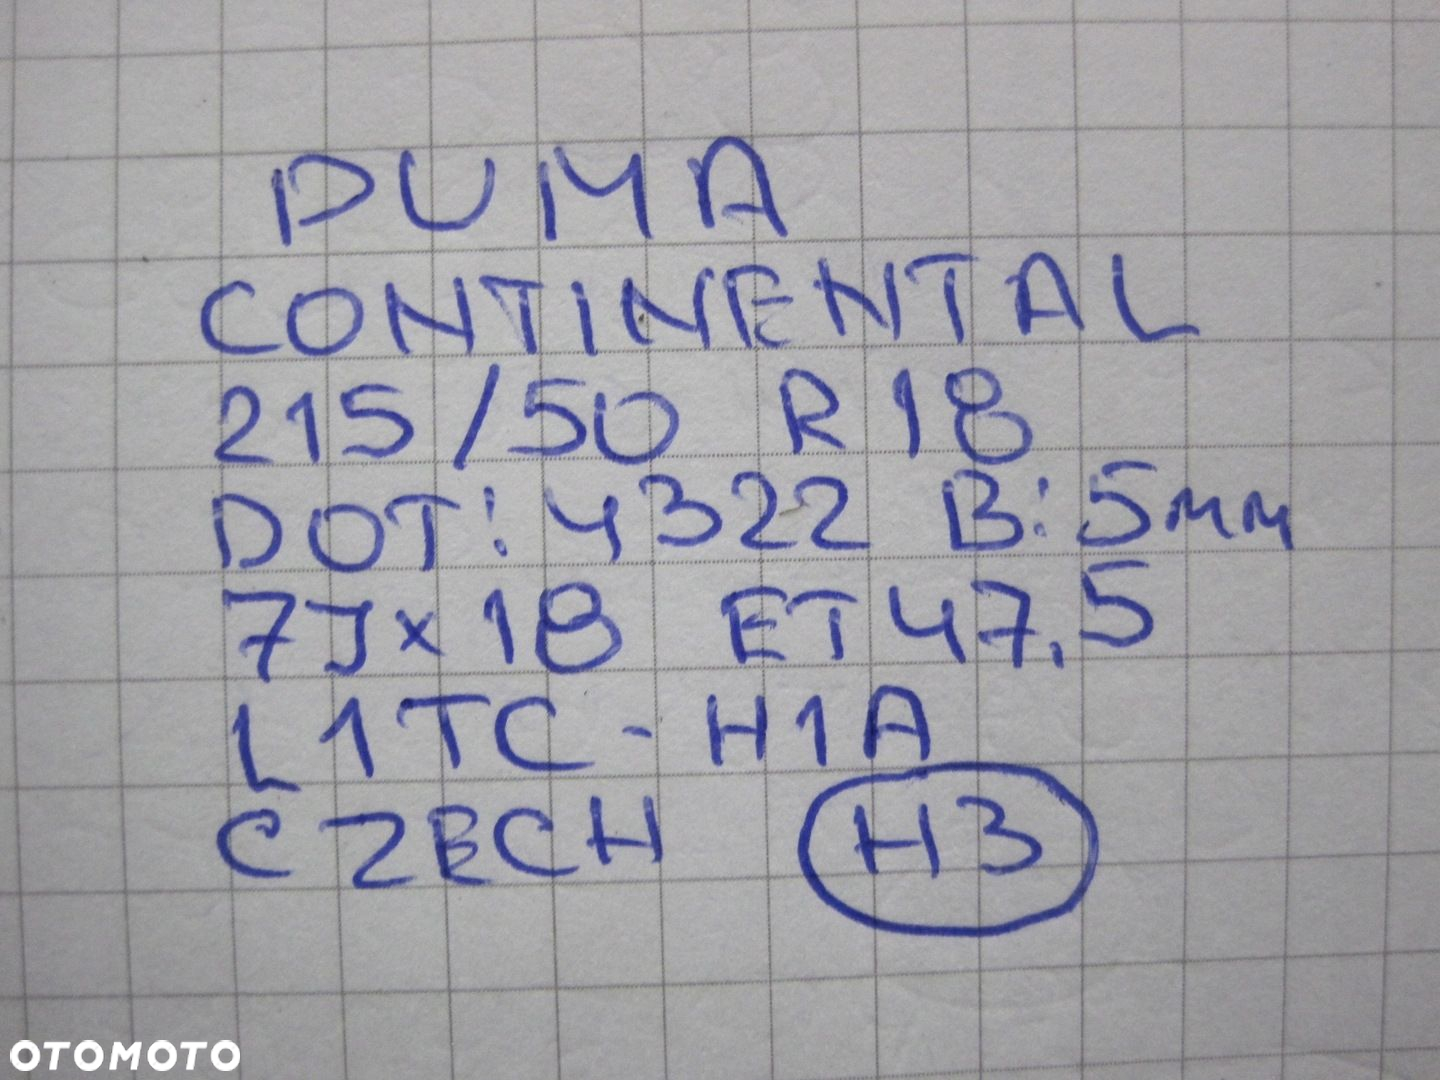 PUMA
CONTINENTAL
215/50 R18
DOT: 4322 B: 5mm
7Jx18 ET 47,5
L1TC-H1A
CZECH H3
OTOMOTO